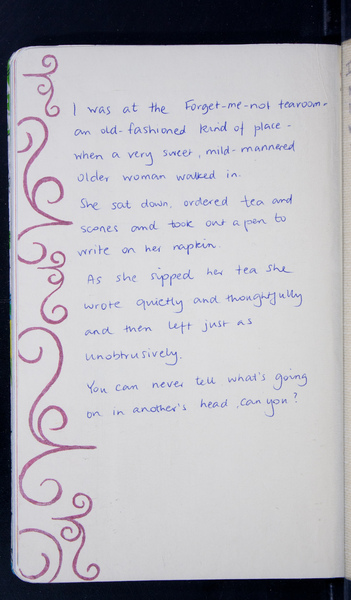 I was at the Forget-me-not tearoom -
an old-fashioned kind of place -
when a very sweet, mild-mannered
older woman walked in.
She sat down, ordered tea and
scones and took out a pen to
write on her napkin.
As she sipped her tea she
wrote quietly and thoughtfully
and then left just as
unobtrusively.
You can never tell what's going
on in another's head, can you?